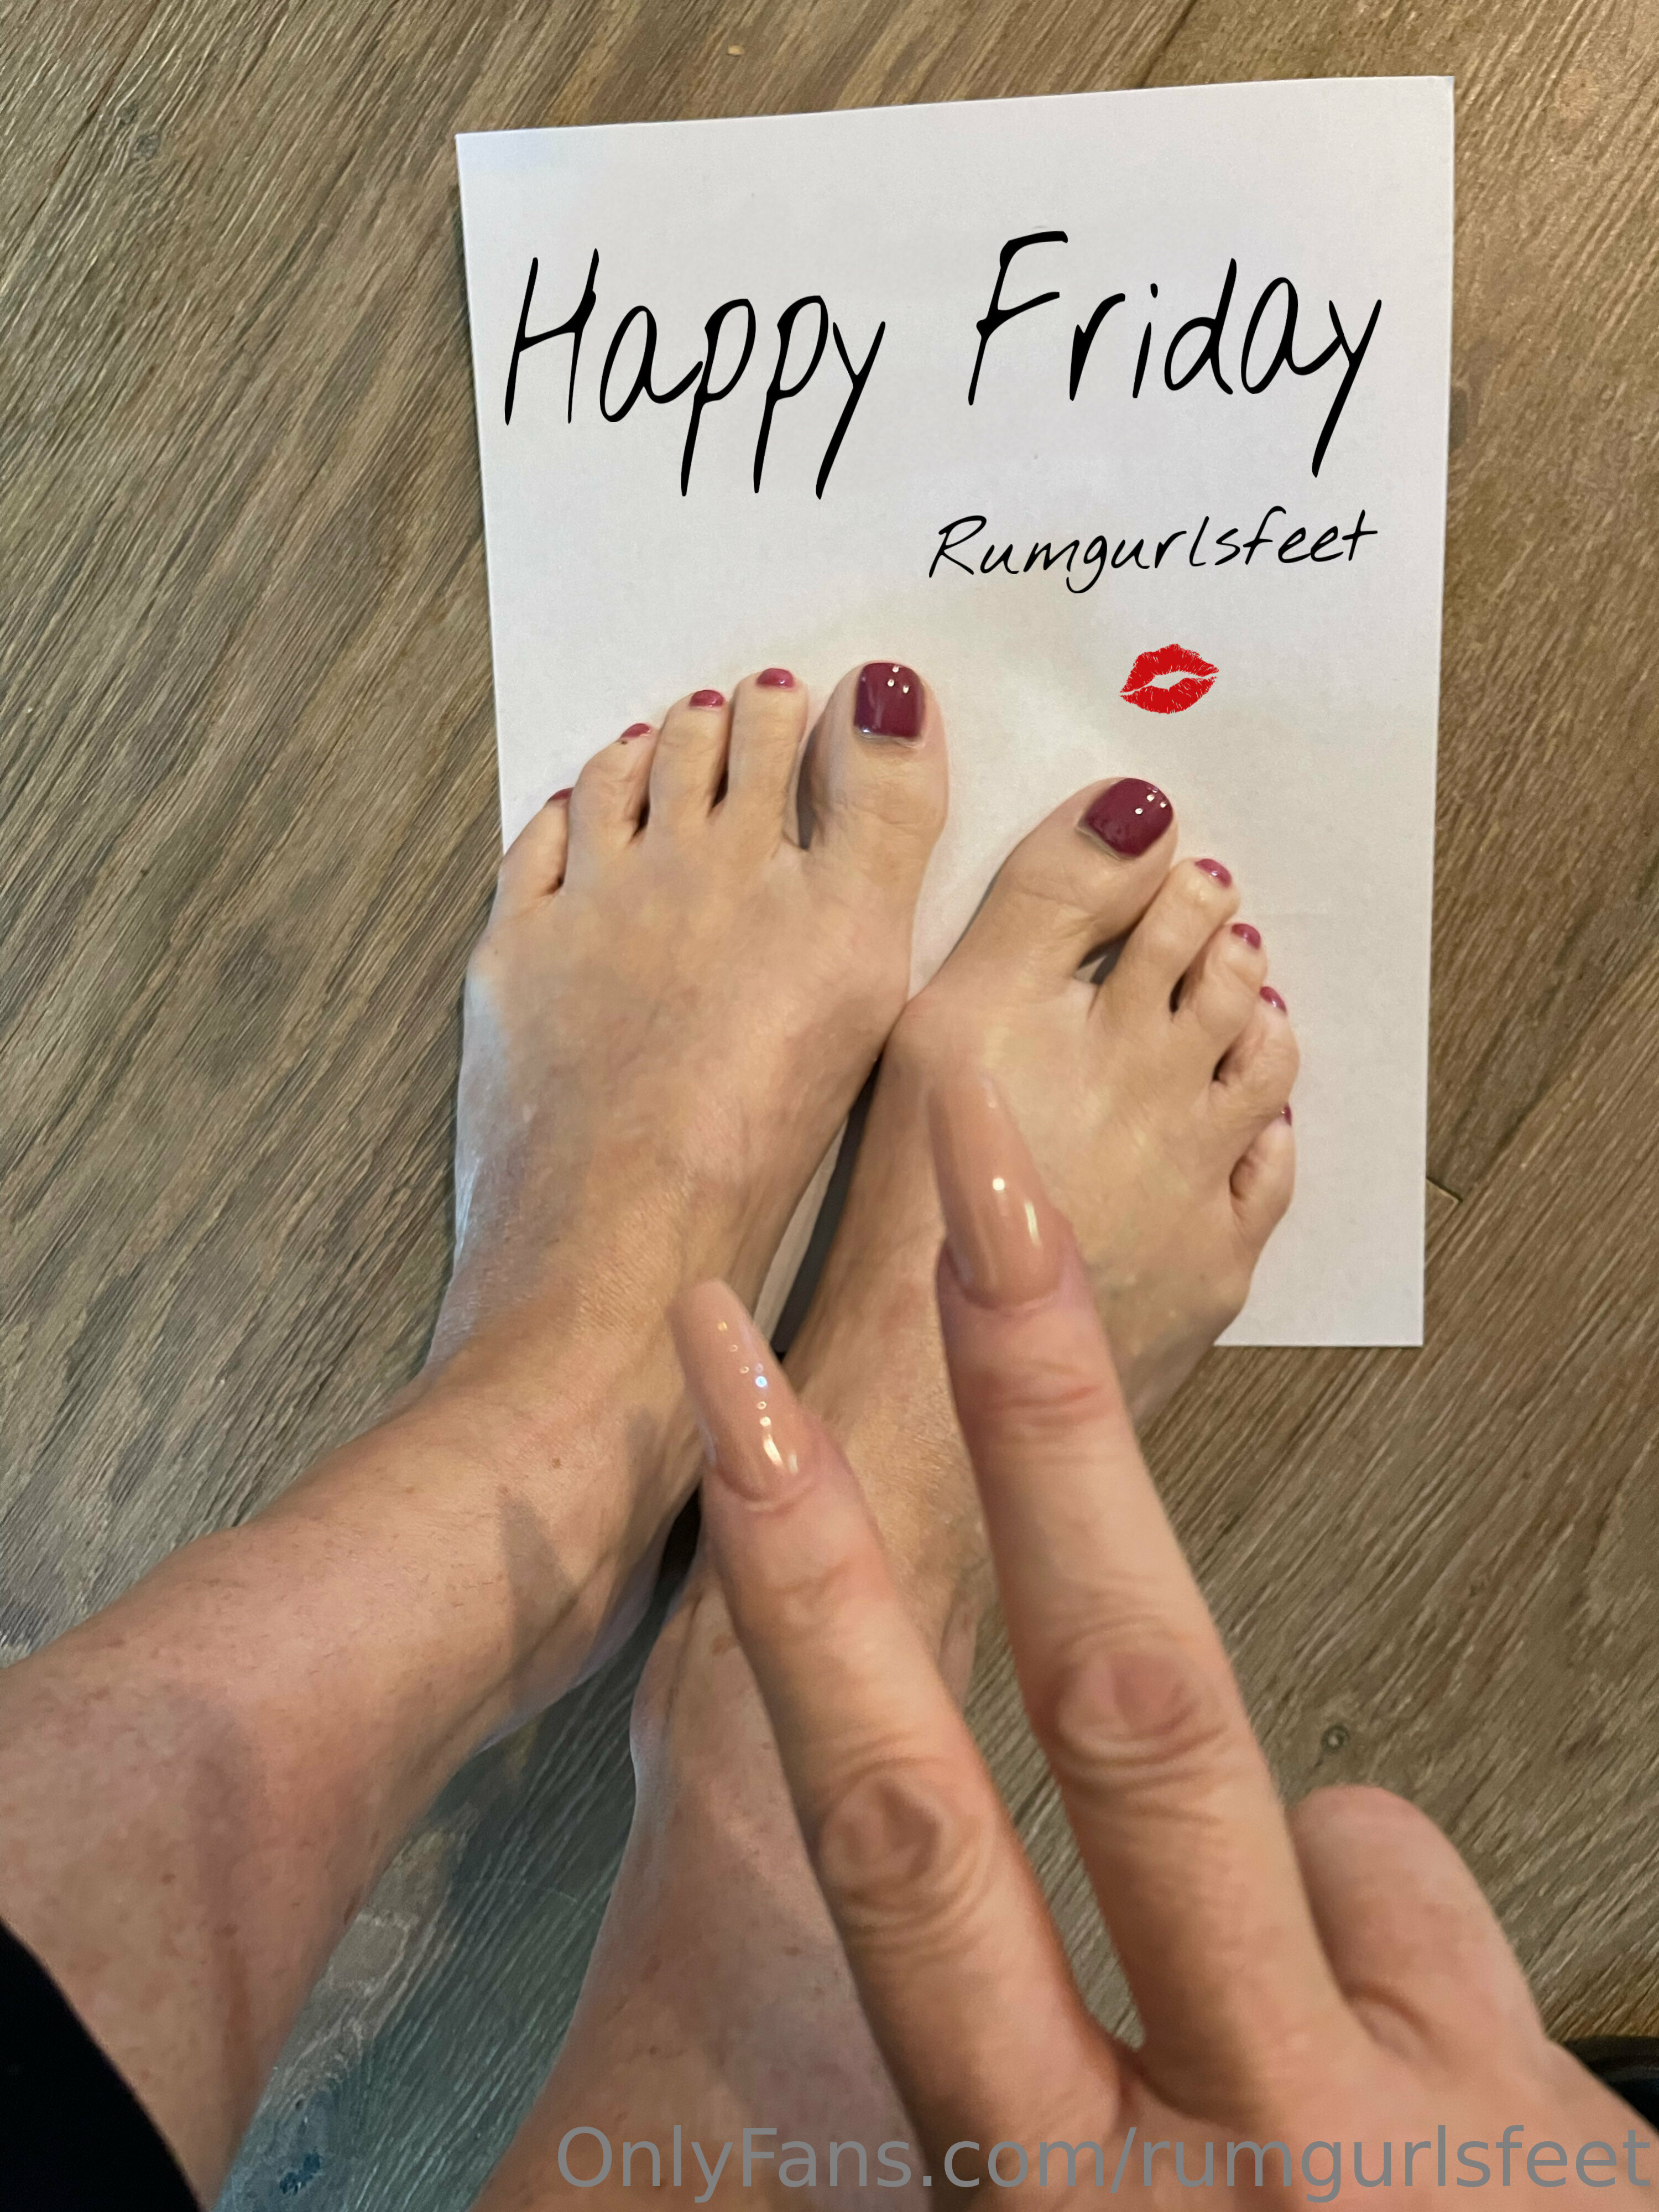 Happy Friday
Rumgurlsfeet
OnlyFans.com/rumgurlsfeet